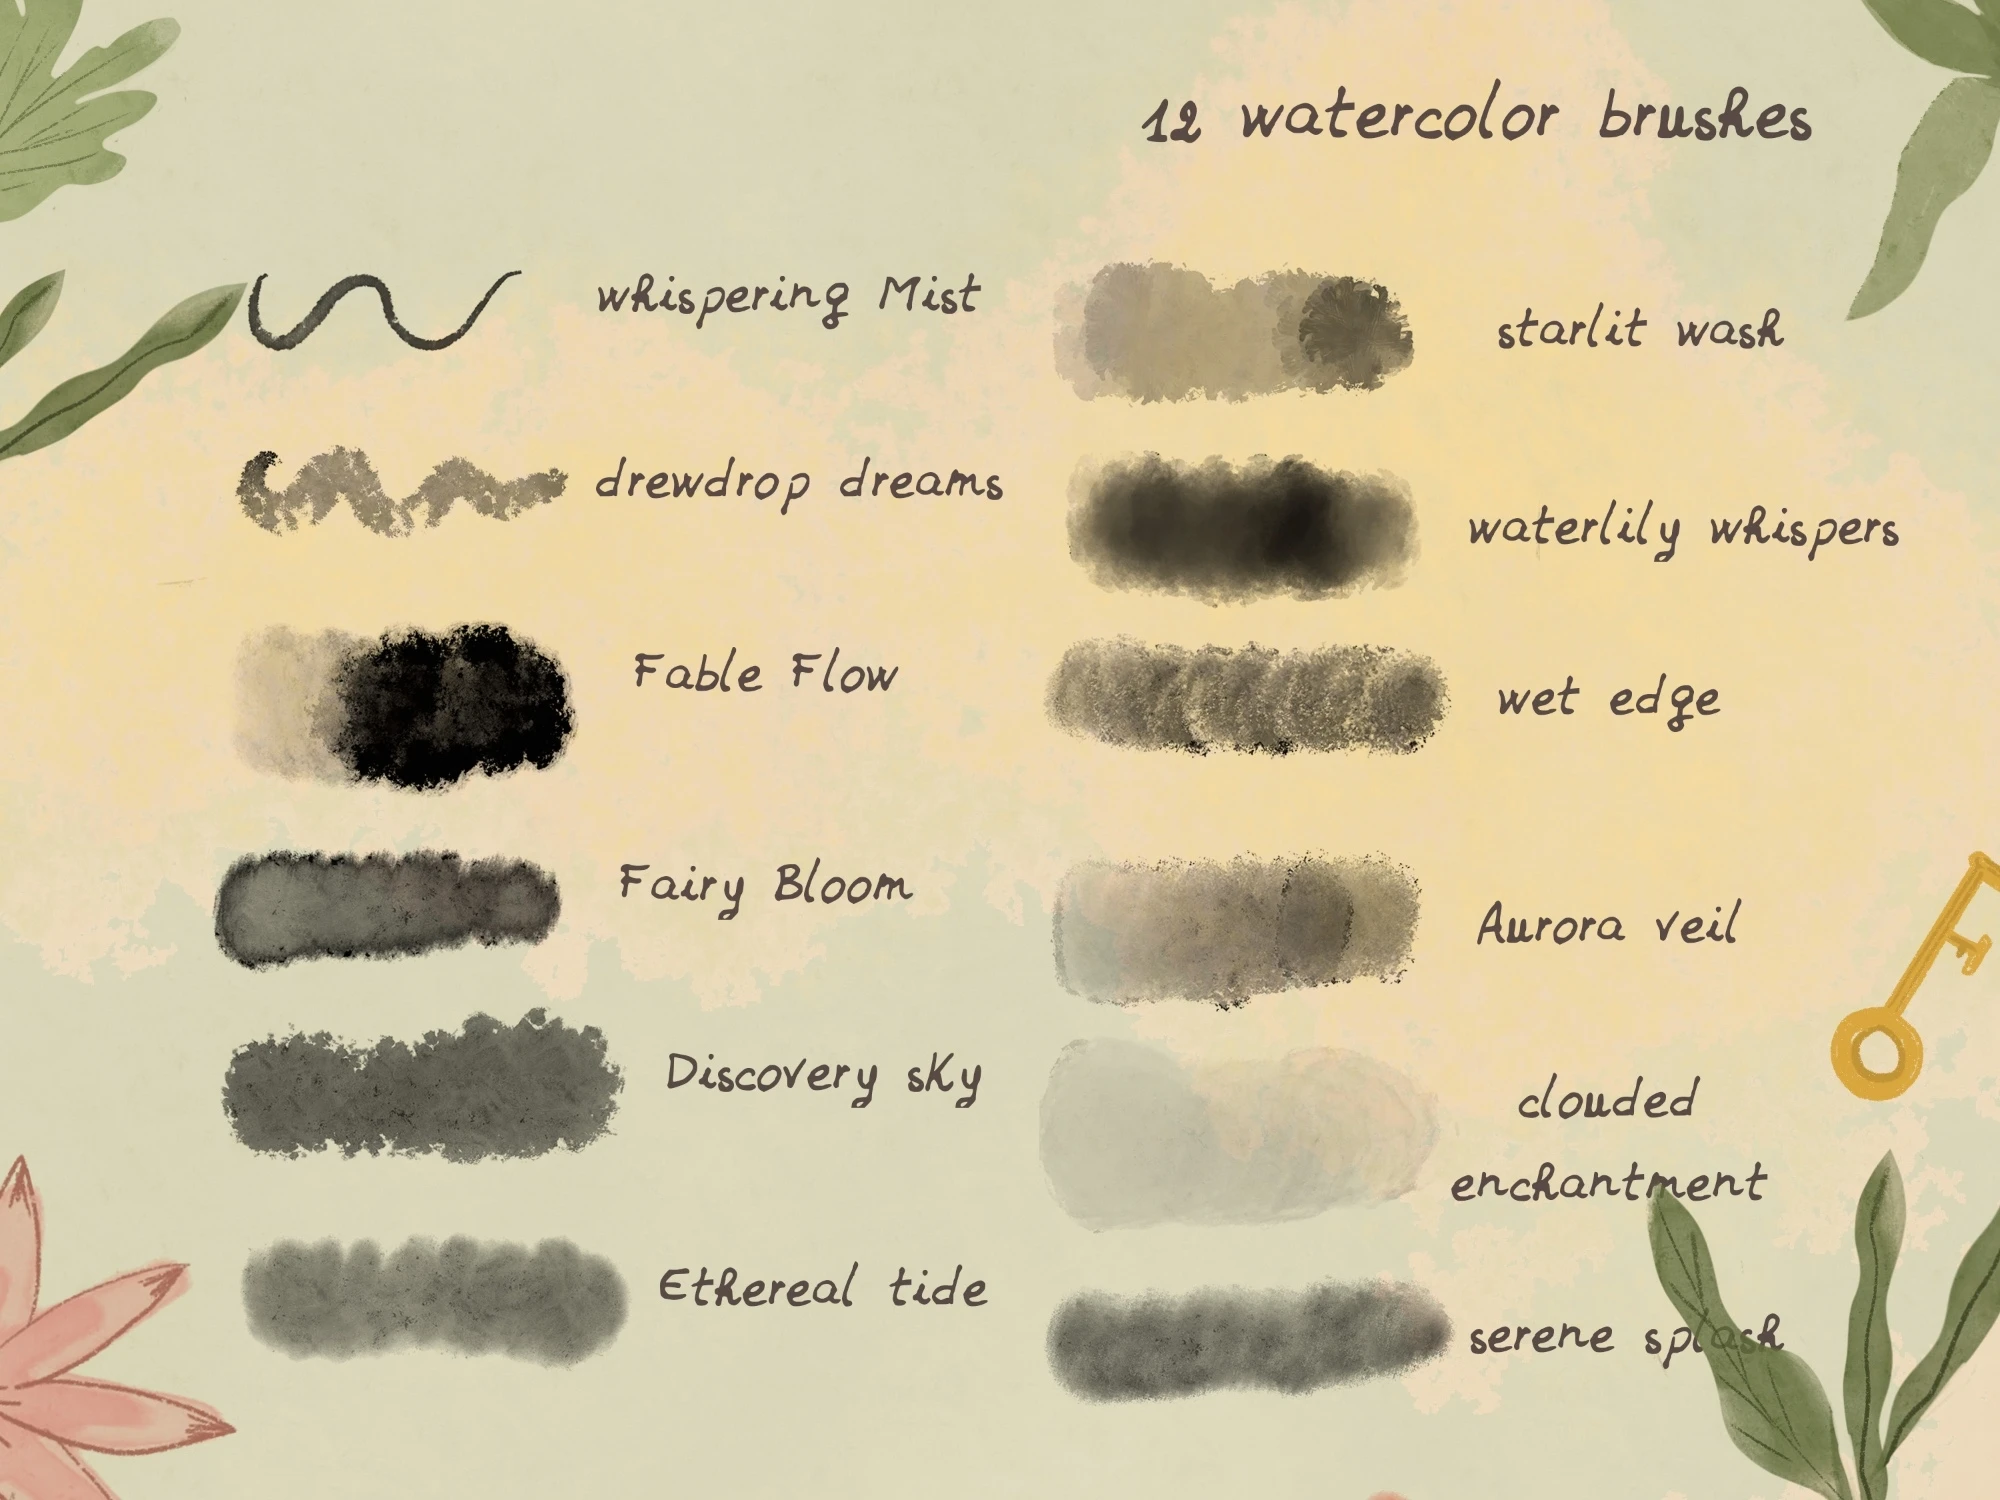 12 watercolor brushes
whispering Mist
drewdrop dreams
Fable Flow
Fairy Bloom
Discovery sKy
Ethereal tide
starlit wash
waterlily whispers
wet edge
Aurora veil
clouded
enchantment
serene splash